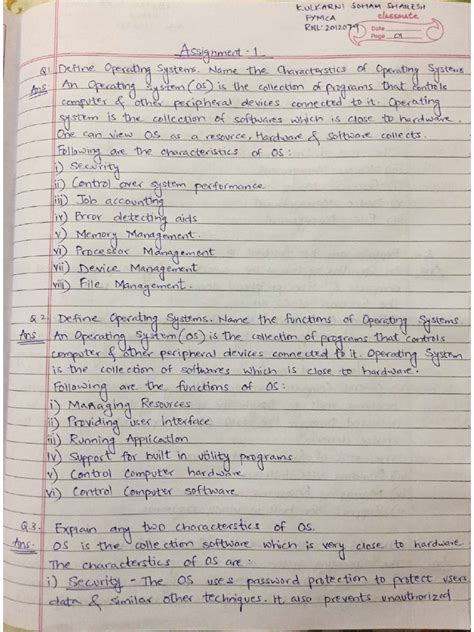 KULKARNI SOHAM SHAILESH
FYMCA
classmate
RNL: 2012079
Date
Page 01
Assignment - 1
Q1. Define Operating Systems. Name the Characterstics of Operating Systems
Ans An Operating System (OS) is the collection of programs that controls
computer & other peripheral devices connected to it. Operating
system is the collection of softwares which is close to hardware.
One can view OS as a resource, Hardware & Software collects.
Following are the characteristics of OS:
i) Security
ii) Control over system performance
iii) Job accounting
iv) Error detecting aids
v) Memory Management
vi) Processor Management
vii) Device Management
viii) File Management.
Q.2. Define Operating Systems. Name the functions of Operating Systems.
Ans. An Operating System (OS) is the collection of programs that controls
computer & other peripheral devices connected to it. Operating System
is the collection of softwares which is close to hardware.
Following are the functions of OS:
i) Managing Resources
ii) Providing user Interface
iii) Running Application
iv) Support for built in utility programs
v) Control Computer hardware
vi) Control Computer software
Q.3. Explain any two characterstics of OS.
Ans:- OS is the collection software which is very close to hardware
The characterstics of OS are:
i) Security - The OS uses password protection to protect users
data & similar other techniques. It also prevents unauthorized